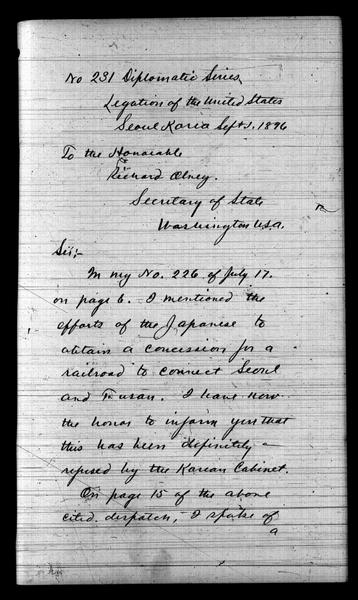 No 231 Diplomatic Series
Legation of the United States
Seoul Korea Sept 1, 1896
To the Honorable
Richard Olney.
Secretary of State
Washington U.S.A.
Sir;-
In my No. 226 of July 17.
on page 6. I mentioned the
efforts of the Japanese to
obtain a concession for a
railroad to connect Seoul
and Fusan. I have now
the honor to inform you that
this has been definitely
refused by the Korean Cabinet.
On page 15 of the above
cited dispatch, I spoke of
a